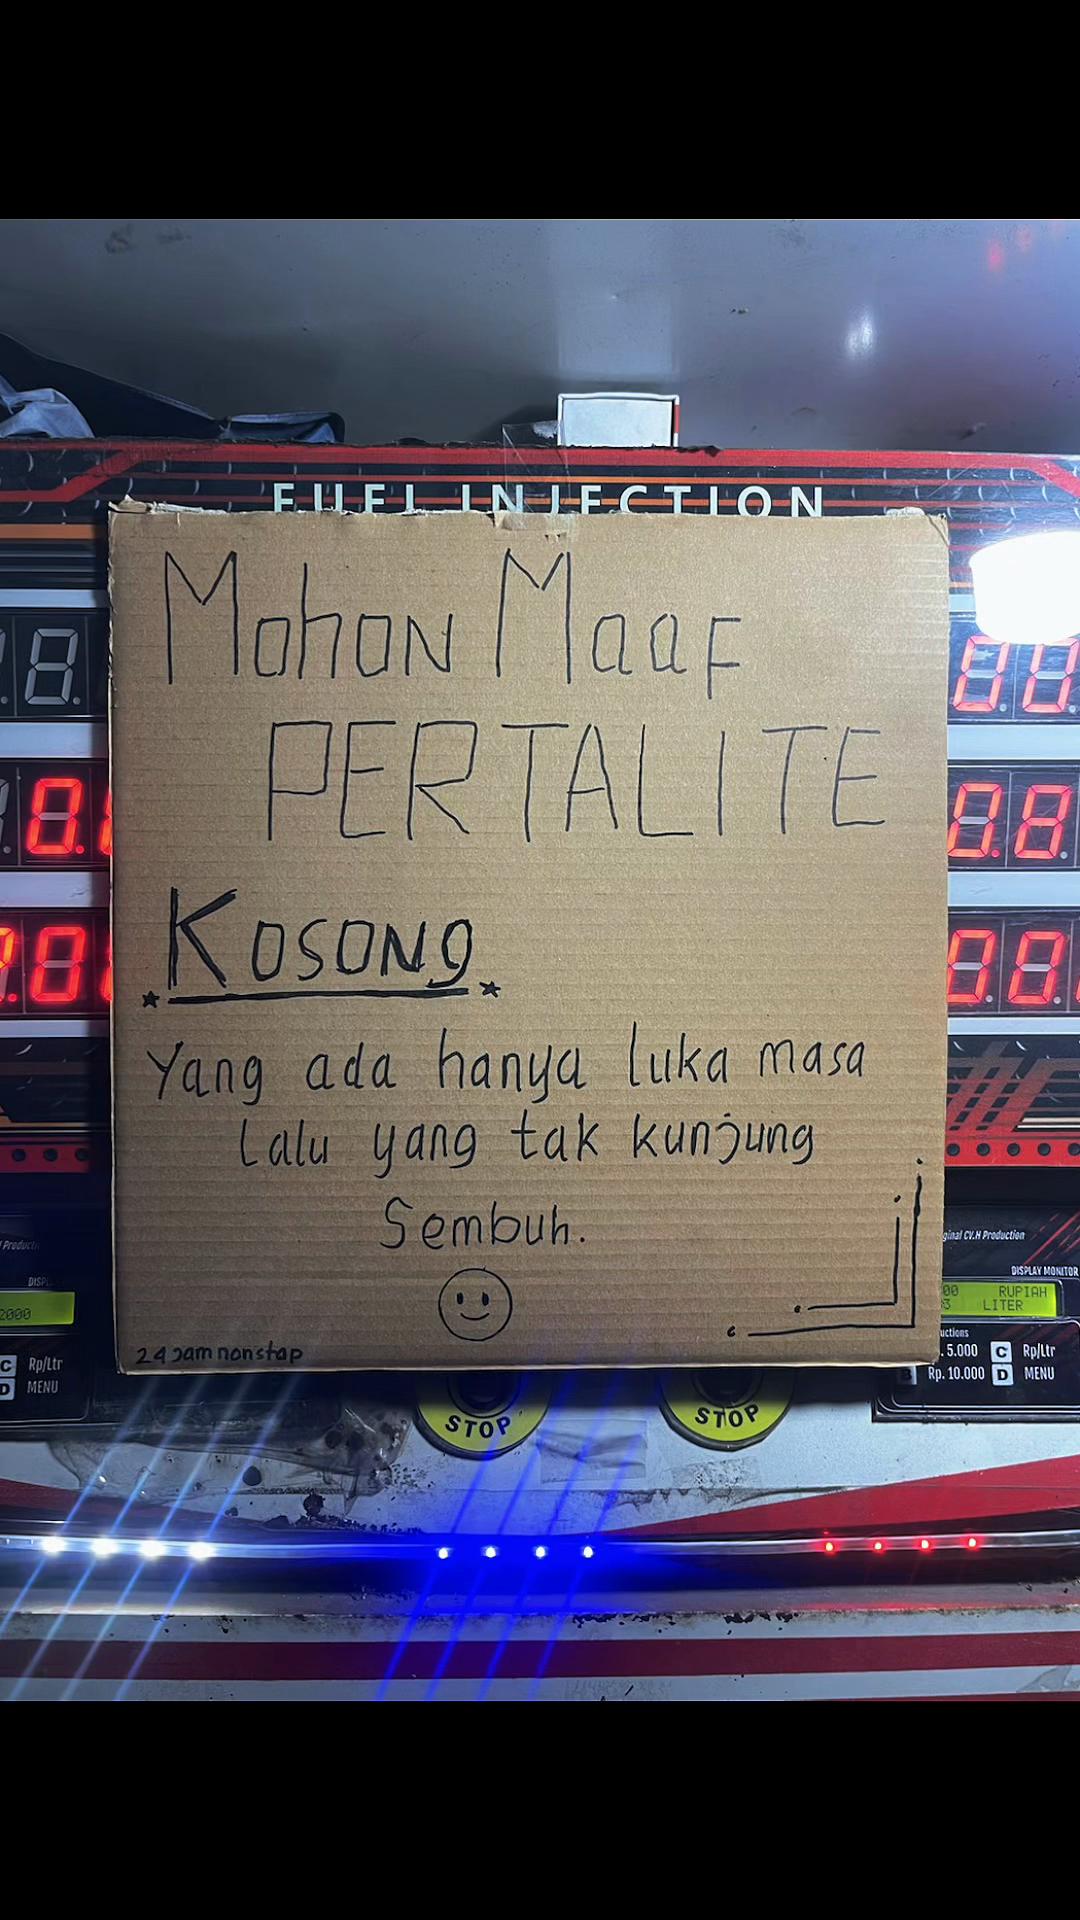 FUEL INJECTION
Mohon Maaf
PERTALITE
Kosong
Yang ada hanya luka masa
Lalu yang tak kunjung
Sembuh.
24 Jam nonstop
2000
C Rp/Ltr
D MENU
ginal CV.H Production
DISPLAY MONITOR
RUPIAH
LITER
5.000 C Rp/Ltr
B Rp. 10.000 D MENU
STOP
STOP